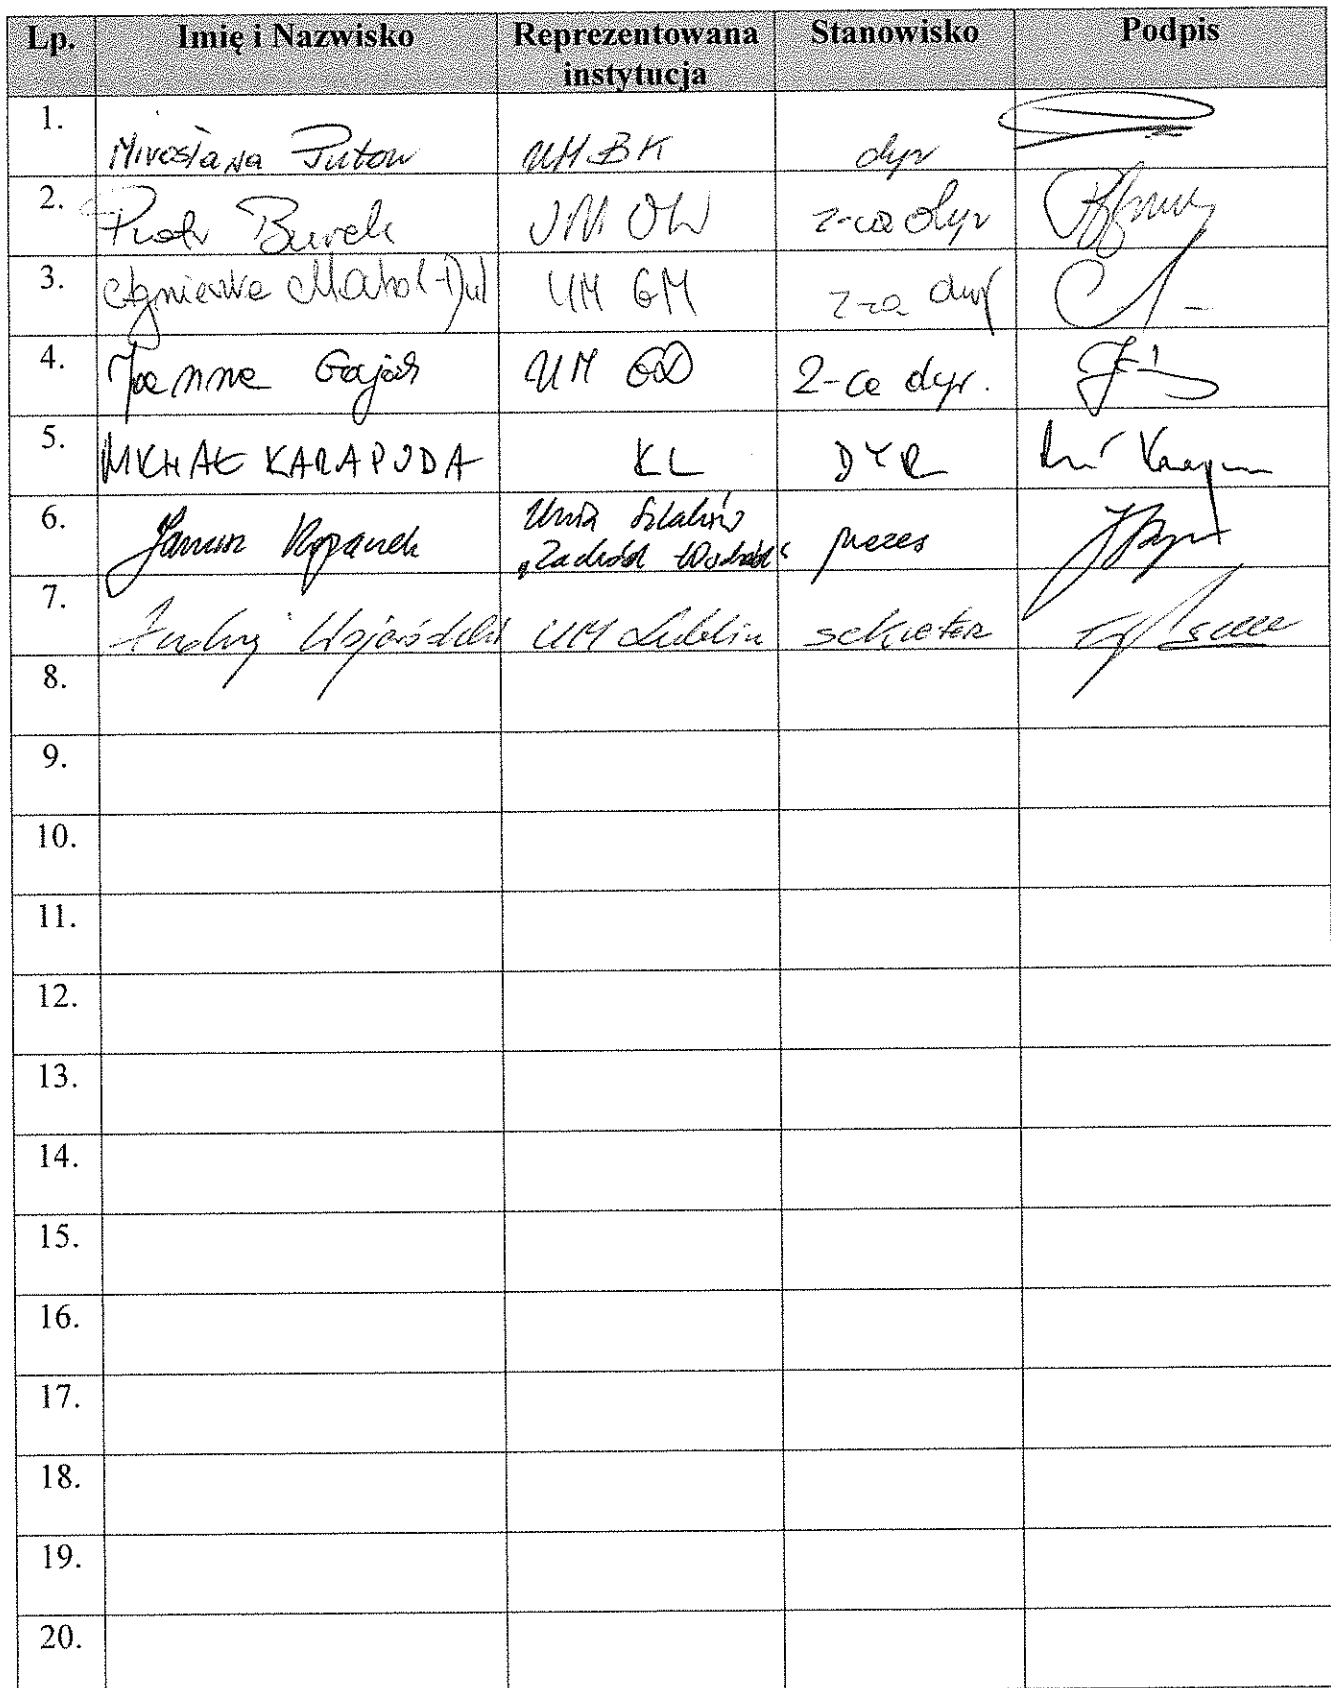 Lp. Imię i Nazwisko Reprezentowana instytucja Stanowisko Podpis
1. Mirosława Puton UM BK dyr
2. Piotr Burek UM OW z-ca dyr
3. Agnieszka UM GM z-ca dyr
4. Joanna Gajak UM GD Z-ca dyr.
5. MICHAŁ KARAPUDA KL DYR
6. Janusz Kopaczek Unia Szlaków prezes
„Zachód Wschód"
7. Andrzej Wojewódzki UM Lublin sekretarz
8.
9.
10.
11.
12.
13.
14.
15.
16.
17.
18.
19.
20.